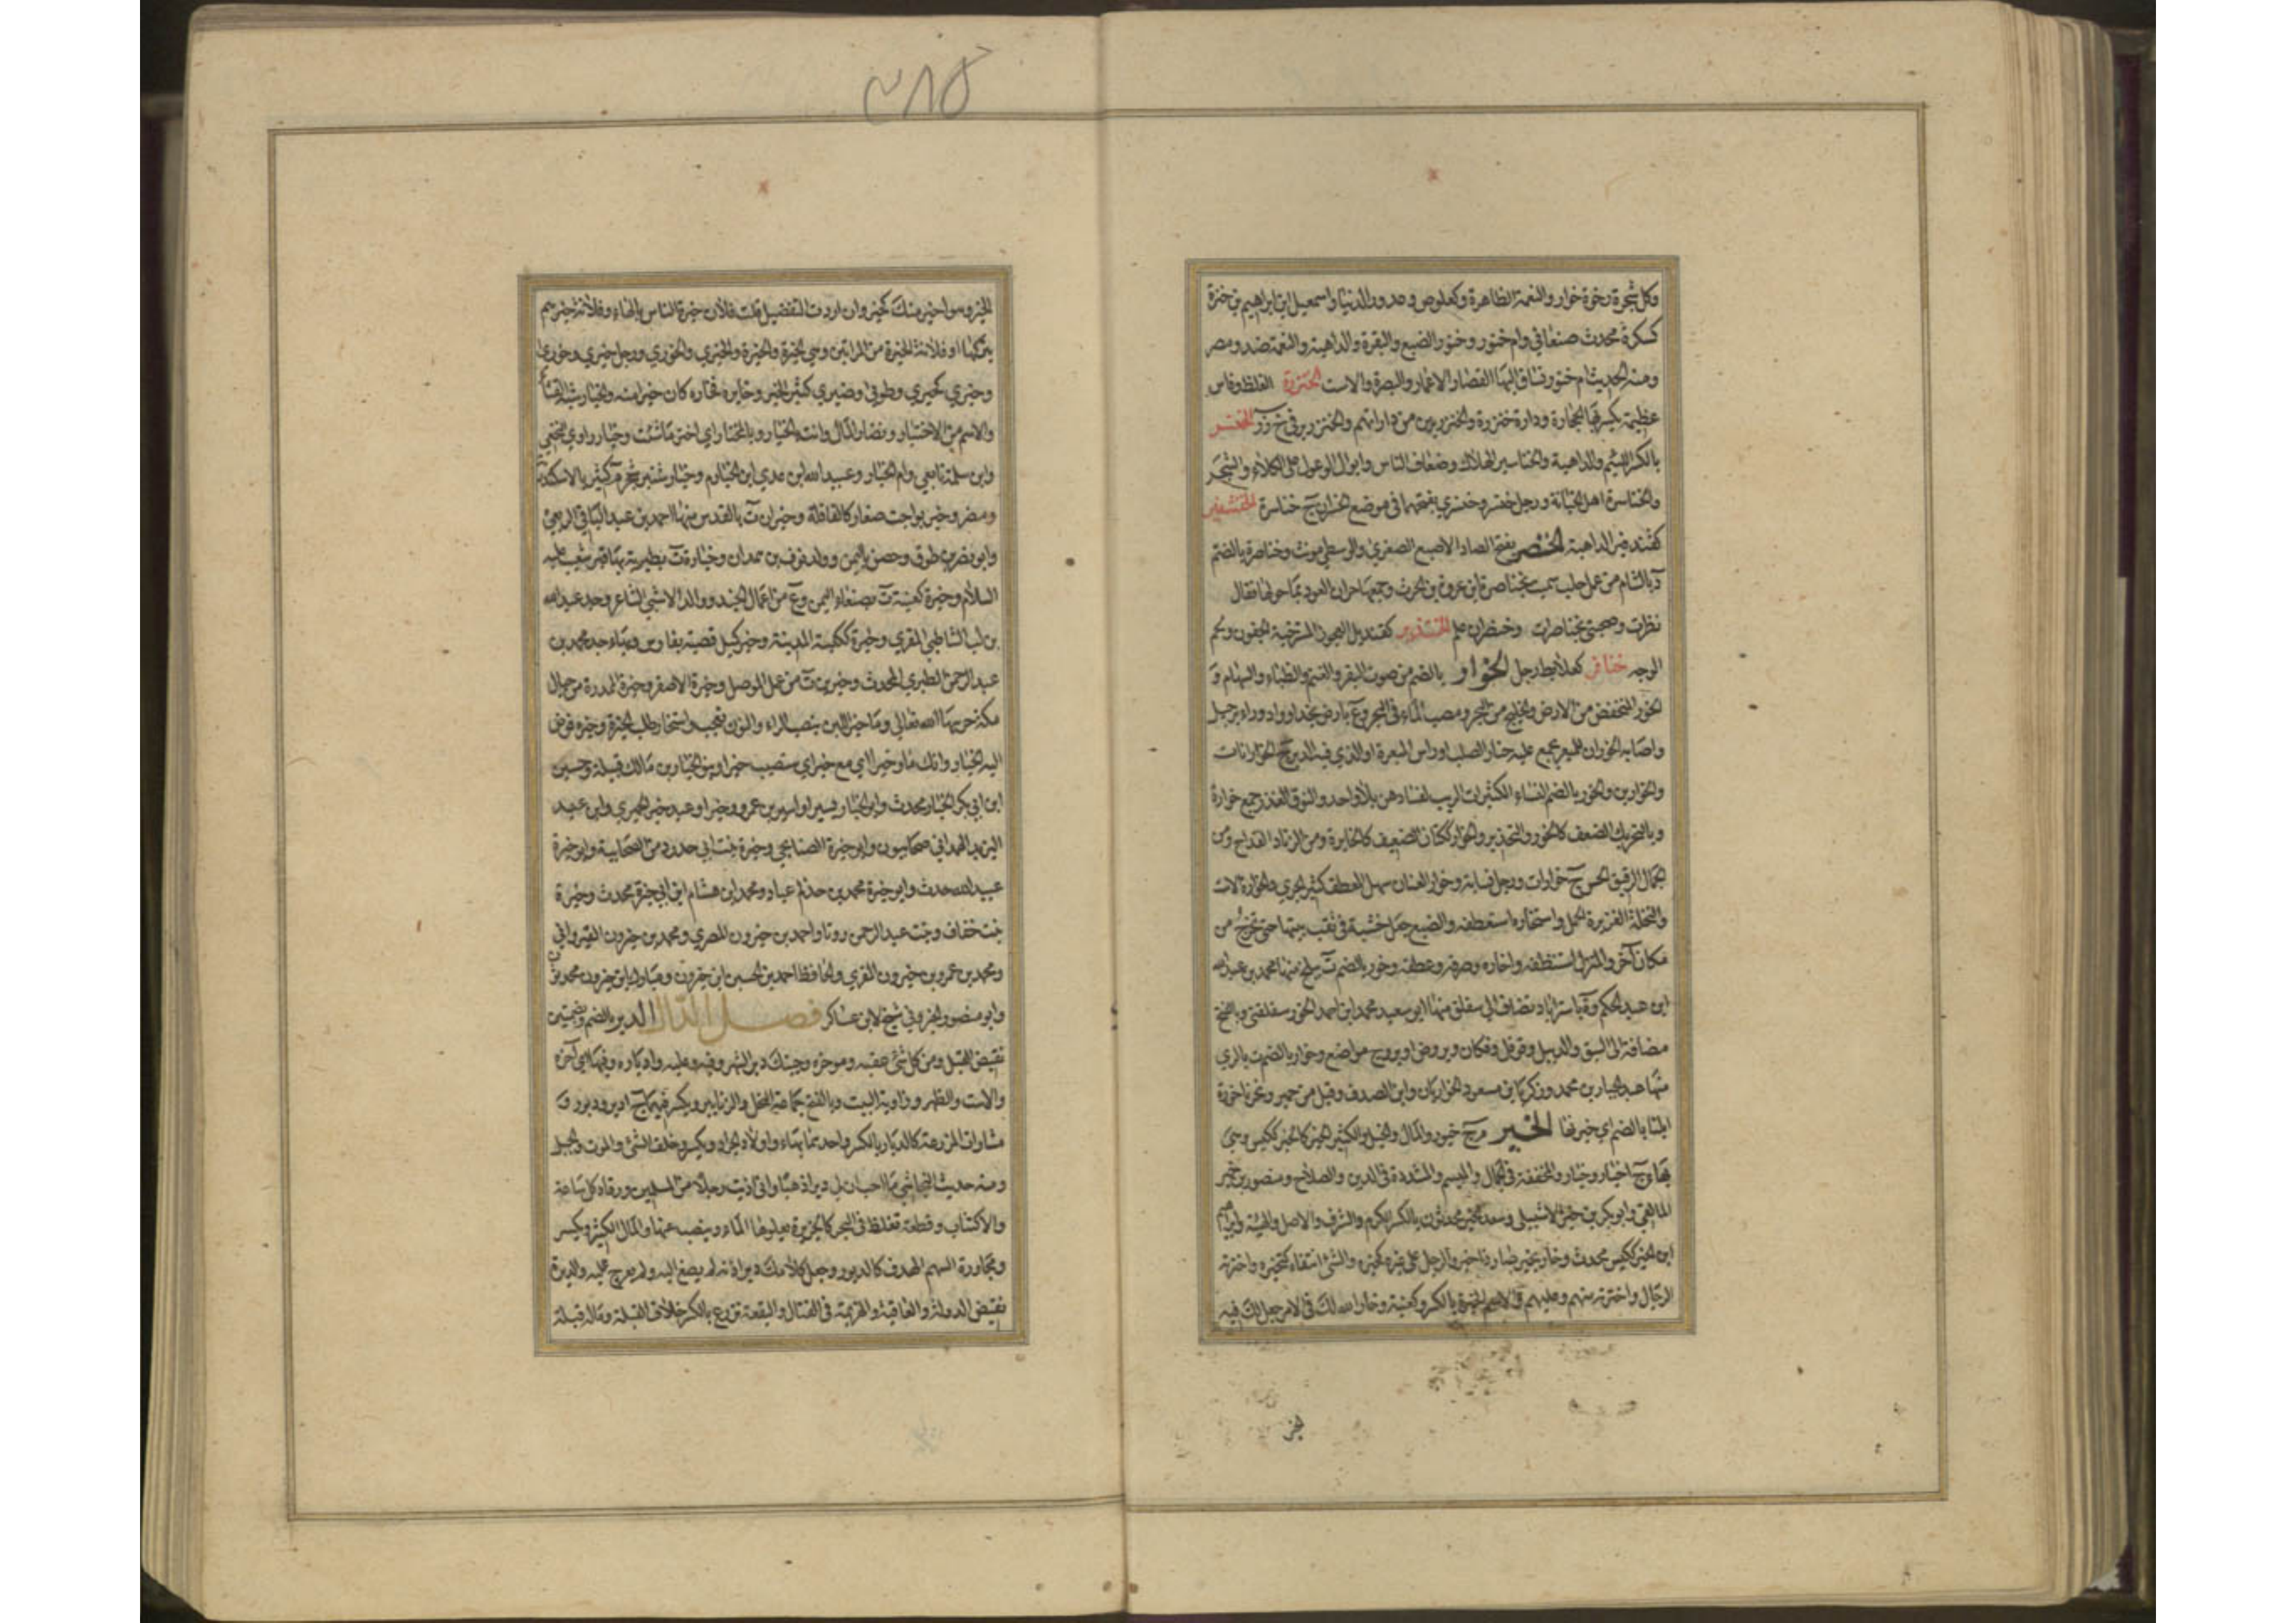 وكل شجرة رخوة خوار والنعمة الظاهرة وكعلوص وصدور الدنيا واسمعيل ابن ابراهيم بن خنرة
كسكرة محدث صنعاني وام خنور وخنور الضبع والبقرة والداهية والنعمة ضد ومصر
ومنه الحديث ام خنور تساق اليها القصار الاعمار والبصرة والاست الخنزرة الغلظ وفاس
عظيمة يكسر بها الحجارة ودارة خنزرة والخنزرين من داراتهم والخنزير في خ ز ر الخنسر
بالكسر اللئيم والداهية والخناسير الهلاك وضعاف الناس وابوال الوعول على الكلاء والشجر
والخناسرة اهل الخيانة ورجل خنسر وخنسري بفتحهما في موضع الخسران ج خناسرة الخنشفير
كقندفير الداهية الخنصر بفتح الصاد الاصبع الصغرى والوسطى مونث وخناصرة بالضم
د بالشام من عمل حلب سمي بخناصرة ابن عروة بن الحرث وجمعها جران العود بما حولها فقال
نظرت وصحبتي بخناصرات وخنظران علم كقنديل العجوز المسترخية الجفون ولحم
الوجه خنافر كعلابط رجل الخوار بالضم من صوت البقر والغنم والظباء والسهام و
الخور المنخفض من الارض والخليج من البحر ومصب الماء في البحر وع بارض نجد او واد وراء برجيل
واصابة الخوران للمبعر يجمع عليه حتار الصلب او راس المبعرة او الذي فيه الدبر ج الخوارانات
والخوارين والخور بالضم النساء الكثيرات الريب لفسادهن بلا واحد والنوق الغزر جمع خوارة
وبالتحريك الضعف كالخور والتخوير والخوار ككتان الضعيف كالخاير ومن الزناد القداح ومن
الجمال الرقيق الحسن ج خوارات ورجل نسابة وخوار العنان سهل المعطف كثير الجري والخوارة الاست
والنخلة الغزيرة الحمل واستخاره استعطفه والضبع جعل خشبة في ثقب بيتها حتى تخرج من
مكان آخر والمنزل استنظفه واخاره صرفه وعطفه وخور بالضم ة ببلخ منها محمد بن عبدالله
ابن عبد الحكم وة باستراباد تضاف الى سفلق منها ابو سعيد محمد ابن احمد الخور سفلقي وبالفتح
مضافة الى السيق والديبل وفوفل وفكان وبروض او بروج مواضع وخوار بالضم ة بالري
منها عبد الجبار بن محمد وزكريا بن مسعود الخواريان وابن الصدف وقيل من حمير ونحرنا خورة
ابلنا بالضم اي خيرتها الخير م ج خيور والمال والخيل والكثير الخير كالخير ككيس وهي
بهاء ج اخيار وخيار والمخففة في الجمال والميسم والمشددة في الدين والصلاح ومنصور بن خير
المالقي وابو بكر بن خير الاشبيلي وسعد الخير محدثون بالكسر الكرم والشرف والاصل والهيئة وابراهيم
ابن الخير ككيس محدث وخار يخير صار ذا خير والرجل على غيره كخيره والشئ انتقاه كتخيره واخترته
الرجال واخترته منهم وعليهم والاسم الخيرة بالكسر وكعنبة وخار الله لك في الامر جعل لك فيه
الخير
٣٨٥
الخير وهو اخير منك كخير وان اردت التفضيل قلت فلان خيرة الناس بالهاء وفلانة خيرهم
بتركها او فلانة الخيرة من المراتين وهي الخيرة والخيرة والخيرى والخورى ورجل خيري وخوري
وخيري كحيري وطوبى وضيزى كثير الخير وخايره فخاره كان خيرا منه والخيار شبه القثاء
والاسم من الاختيار ونضار المال وانت بالخيار وبالمختار اي اختر ما شئت وخيار راوي النخعي
وابن سلمة تابعي وام الخيار وعبيد الله ابن عدي ابن الخيار م وخيار شنبر شجر م كثير بالاسكندرية
ومصر وخير بواحب صغار كالقاقلة وخيران ة بالقدس منها احمد بن عبد الباقي الربعي
وابو نصر بن طوق وحصن باليمن ووالد نوف بن همدان وخيارة ة بطبرية بها قبر شعيب عليه
السلام وخيرة كعنبة ة بصنعاء اليمن وع من اعمال الجند ووالد الاشبي الشاعر وجد عبدالله
بن لب الشاطبي المقري وخيرة ككيسة المدينة وخير كميل قصبة بفارس وبهاء جد محمد بن
عبد الرحمن الطبري المحدث وخيرين ة من عمل الموصل وخيرة الاصفر وخيرة الممدرة من جبال
مكة حرسها الله تعالى وما خير اللبن بنصب الراء والنون تعجب واستخار طلب الخيرة وخيره فوض
اليه الخيار وانك ما وخيرا اي مع خير اي ستصيب خيرا وبنو الخيار بن مالك قبيلة وحسين
ابن ابي بكر الخيار محدث وابو الخيار يسير او اسير بن عمرو وخير او عبد خير الحميري وابن عبد
اليزيد الهمداني صحابيون وابو خيرة الصنابحي وخيرة بنت ابي حدرد من الصحابية وابو خيرة
عبيد الله حدث وابو خيرة محمد بن حذلم عباد ومحمد ابن هشام ابن ابي خيرة محدث وخيرة
بنت خفاف وبنت عبد الرحمن روتا واحمد بن خيرون المصري ومحمد بن خيرون القيرواني
ومحمد بن عمرو بن خيرون المقري والحافظ احمد بن الحسين ابن خيرون ومبارك ابن خيرون محمدثون
وابو منصور الخيروني شيخ لابن عساكر فصل الدال الدبر بالضم وبضمتين
نقيض القبل ومن كل شئ عقبه وموخره وجئتك دبر الشهر وفيه وعليه وادباره وفيها اي آخره
والاست والظهر وزاوية البيت وبالفتح جماعة النحل والزنابير ويكسر فيهما ج ادبر ودبور و
مشارات المزرعة كالدبار بالكسر واحدتها بهاء واولاد الجراد ويكسر وخلف الشئ والموت والجبل
ومنه حديث النجاشي ما احب ان لي دبرا ذهبا واني اذيت رجلا من المسلمين ورقاد كل ساعة
والاكتتاب وقطعة تغلظ في البحر كالجزيرة يعلوها الماء وينضب عنها والمال الكثير ويكسر
ومجاوزة السهم الهدف كالدبور وجعل كلامك دبر اذنه لم يصغ اليه ولم يعرج عليه والدبرة
نقيض الدولة والعاقبة والهزيمة في القتال والبقعة تزرع بالكسر خلاف القبلة وماله قبلة